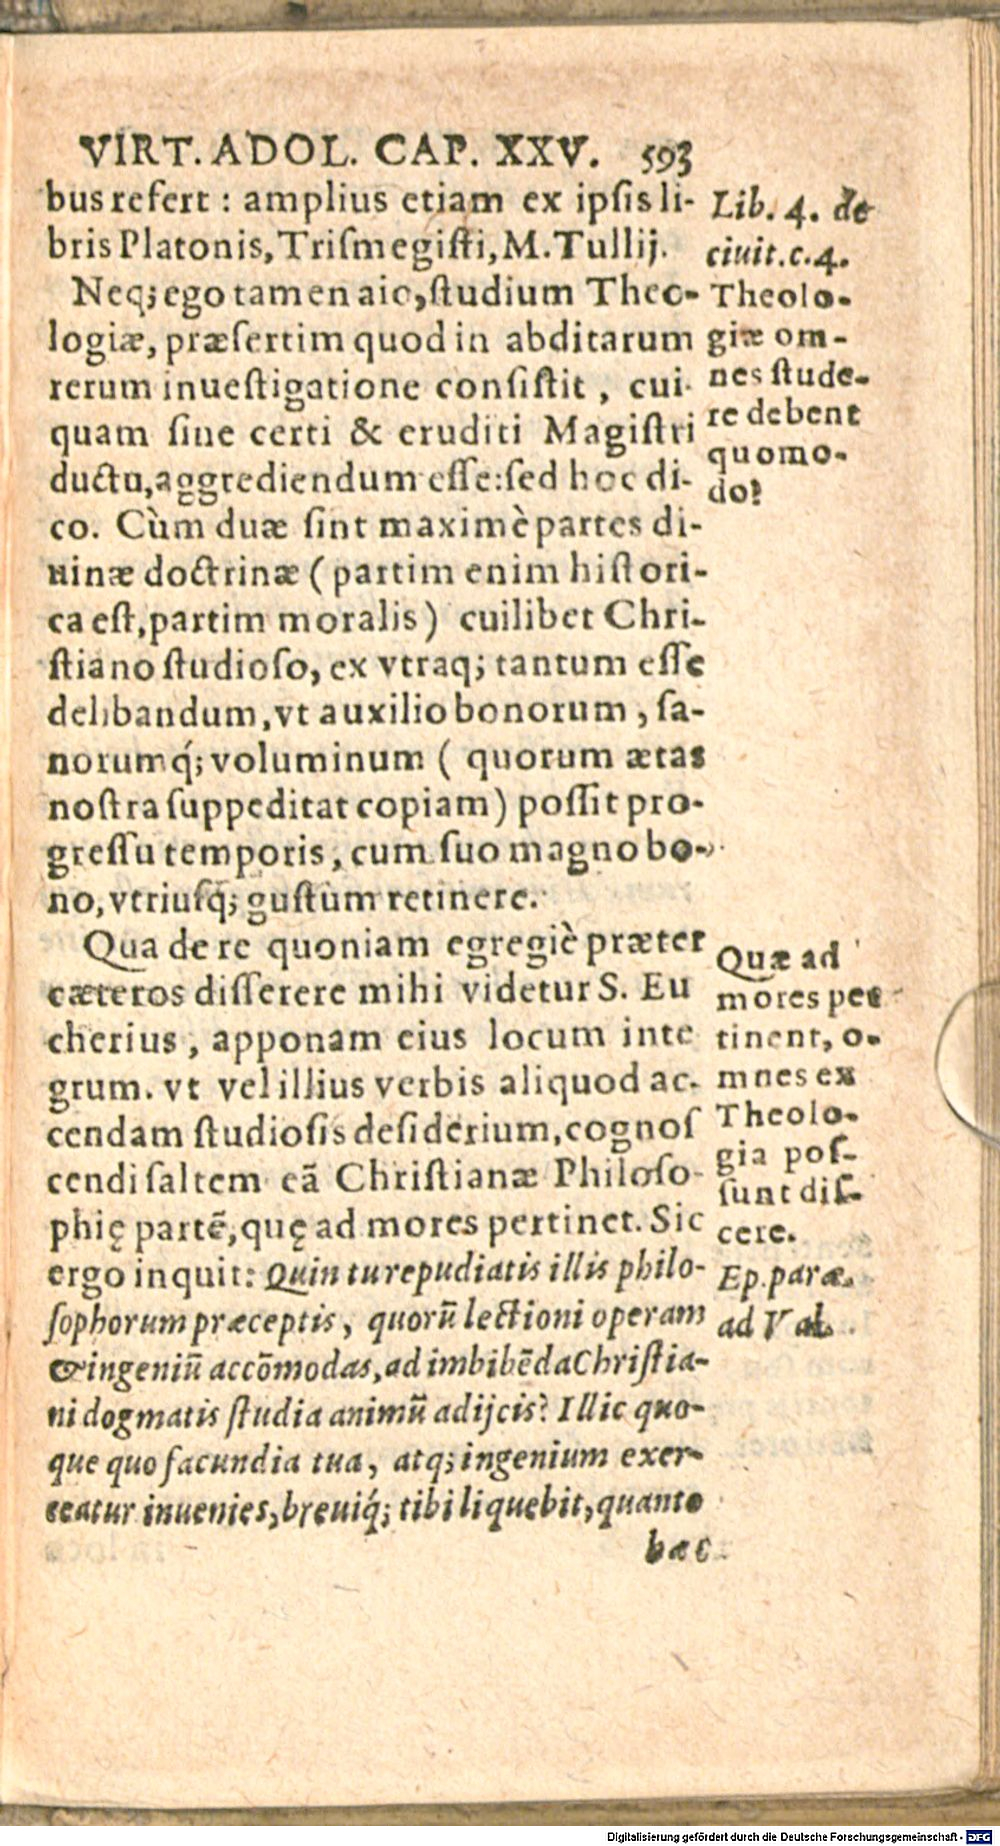 VIRT. ADOL. CAP. XXV. 593
bus refert : amplius etiam ex ipsis li-
bris Platonis, Triſmegiſti, M. Tullij.
Neq; ego tamen aio, ſtudium Theo-
logiæ, præſertim quod in abditarum
rerum inueſtigatione conſiſtit, cui-
quam ſine certi & eruditi Magiſtri
ductu, aggrediendum eſſe: ſed hoc di-
co. Cùm duæ ſint maximè partes di-
uinæ doctrinæ ( partim enim hiſtori-
ca eſt, partim moralis ) cuilibet Chri-
ſtiano ſtudioſo, ex vtraq; tantum eſſe
delibandum, vt auxilio bonorum, ſa-
norumq́; voluminum ( quorum ætas
noſtra ſuppeditat copiam ) poſſit pro-
greſſu temporis, cum ſuo magno bo-
no, vtriuſq; guſtum retinere.
Qua de re quoniam egregiè præter
cæteros diſſerere mihi videtur S. Eu
cherius, apponam eius locum inte
grum. vt vel illius verbis aliquod ac-
cendam ſtudioſis deſiderium, cognoſ
cendi ſaltem eã Christianæ Philoſo-
phię partẽ, quę ad mores pertinet. Sic
ergo inquit: Quin tu repudiatis illis philo-
ſophorum præceptis, quorũ lectioni operam
& ingeniũ accõmodas, ad imbibẽda Chriſtia-
ni dogmatis ſtudia animũ adijcis? Illic quo-
que quo facundia tua, atq; ingenium exer-
ceatur inuenies, breuiq́; tibi liquebit, quanto
hæc
Lib. 4. de
ciuit. c. 4.
Theolo-
giæ om-
nes ſtude-
re debent
quomo-
do?
Quæ ad
mores per
tinent, o-
mnes ex
Theolo-
gia poſ-
ſunt diſ-
cere.
Ep. paræ.
ad Val.
Digitalisierung gefördert durch die Deutsche Forschungsgemeinschaft - DFG